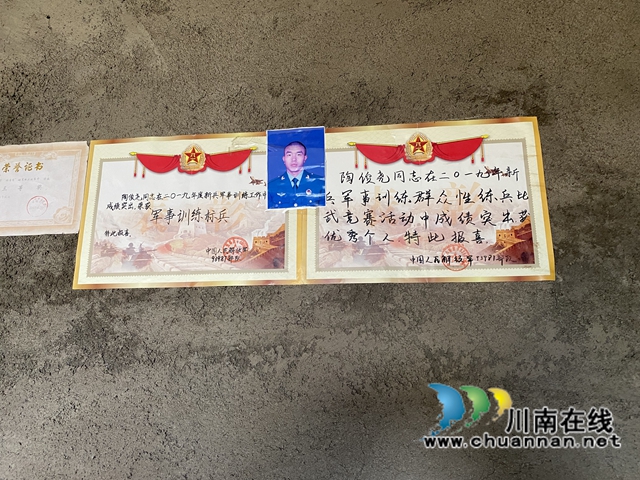 荣誉证书
陶俊尧同志在二〇一九年度新兵军事训练工作中
成绩突出,荣获
军事训练标兵
特此报喜
中国人民解放军
陶俊尧同志在二〇一九年新
兵军事训练群众性练兵比
武竞赛活动中成绩突出荣
优秀个人特此报喜
中国人民解放军
川南在线
www.chuannan.net